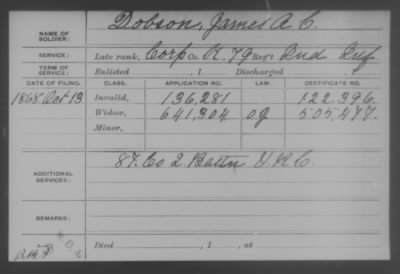 NAME OF SOLDIER: Dobson, James A. C.
SERVICE: Late rank, Corp Co. K. 79 Reg't Ind Inf
TERM OF SERVICE: Enlisted , 1 Discharged , 1
DATE OF FILING. CLASS. APPLICATION NO. LAW. CERTIFICATE NO.
1868 Oct 13 Invalid, 136.281 122.396.
Widow, 641,304 O.G 505.477.
Minor,
ADDITIONAL SERVICES: 87. Co 2 Battn V.R.C
REMARKS:
Died , 1 , at